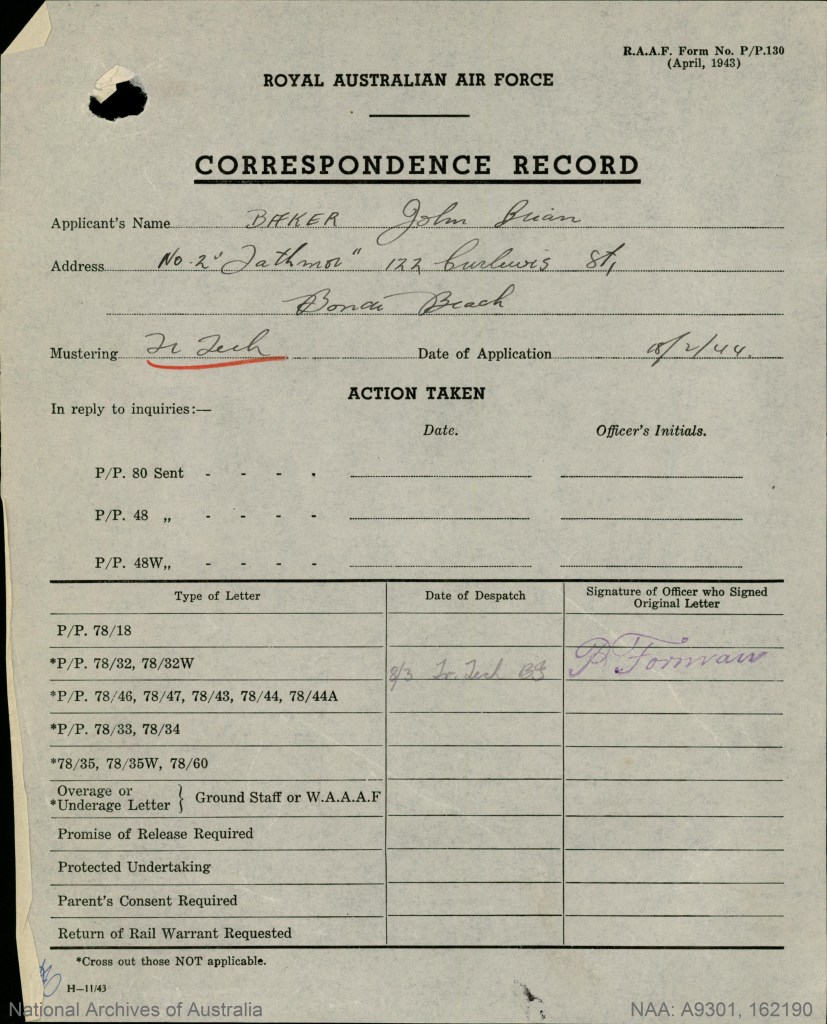 R.A.A.F. Form No. P/P.130
(April, 1943)
ROYAL AUSTRALIAN AIR FORCE
CORRESPONDENCE RECORD
Applicant's Name BAKER John Brian
Address No. 2 "Tathmor" 122 Curlewis St,
Bondi Beach
Mustering Tr Tech Date of Application 18/2/44.
ACTION TAKEN
In reply to inquiries:—
Date. Officer's Initials.
P/P. 80 Sent - - - -
P/P. 48 „ - - - -
P/P. 48W„ - - - -
Type of Letter Date of Despatch Signature of Officer who Signed
Original Letter
P/P. 78/18
*P/P. 78/32, 78/32W 8/3 Tr. Tech P Forman
*P/P. 78/46, 78/47, 78/43, 78/44, 78/44A
*P/P. 78/33, 78/34
*78/35, 78/35W, 78/60
Overage or
*Underage Letter } Ground Staff or W.A.A.A.F
Promise of Release Required
Protected Undertaking
Parent's Consent Required
Return of Rail Warrant Requested
*Cross out those NOT applicable.
H—11/43
National Archives of Australia NAA: A9301, 162190